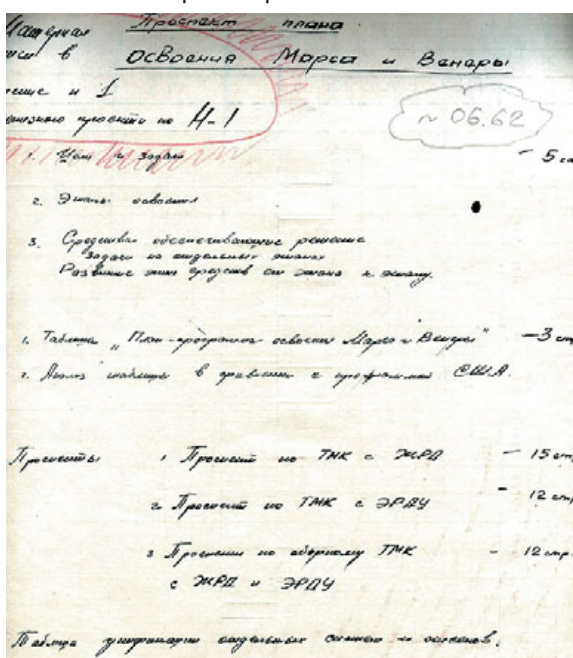 Материал Проспект плана
в Освоения Марса и Венеры
и 1
проекта по Н-1
~ 06.62
1. Цели и задачи - 5 ст
2. Этапы освоения
3. Средства обеспечивающие решение
задачи на отдельных этапах
Развитие этих средств от этапа к этапу.
1. Таблица „План-программа освоения Марса и Венеры" - 3 ст
2. Анализ таблицы в сравнении с программой США.
Проспекты 1 Проспект по ТМК с ЖРД - 15 стр
2 Проспект по ТМК с ЭРДУ - 12 стр
3 Проспект по сборному ТМК - 12 стр.
с ЖРД и ЭРДУ
Таблица унификации отдельных систем и отсеков.